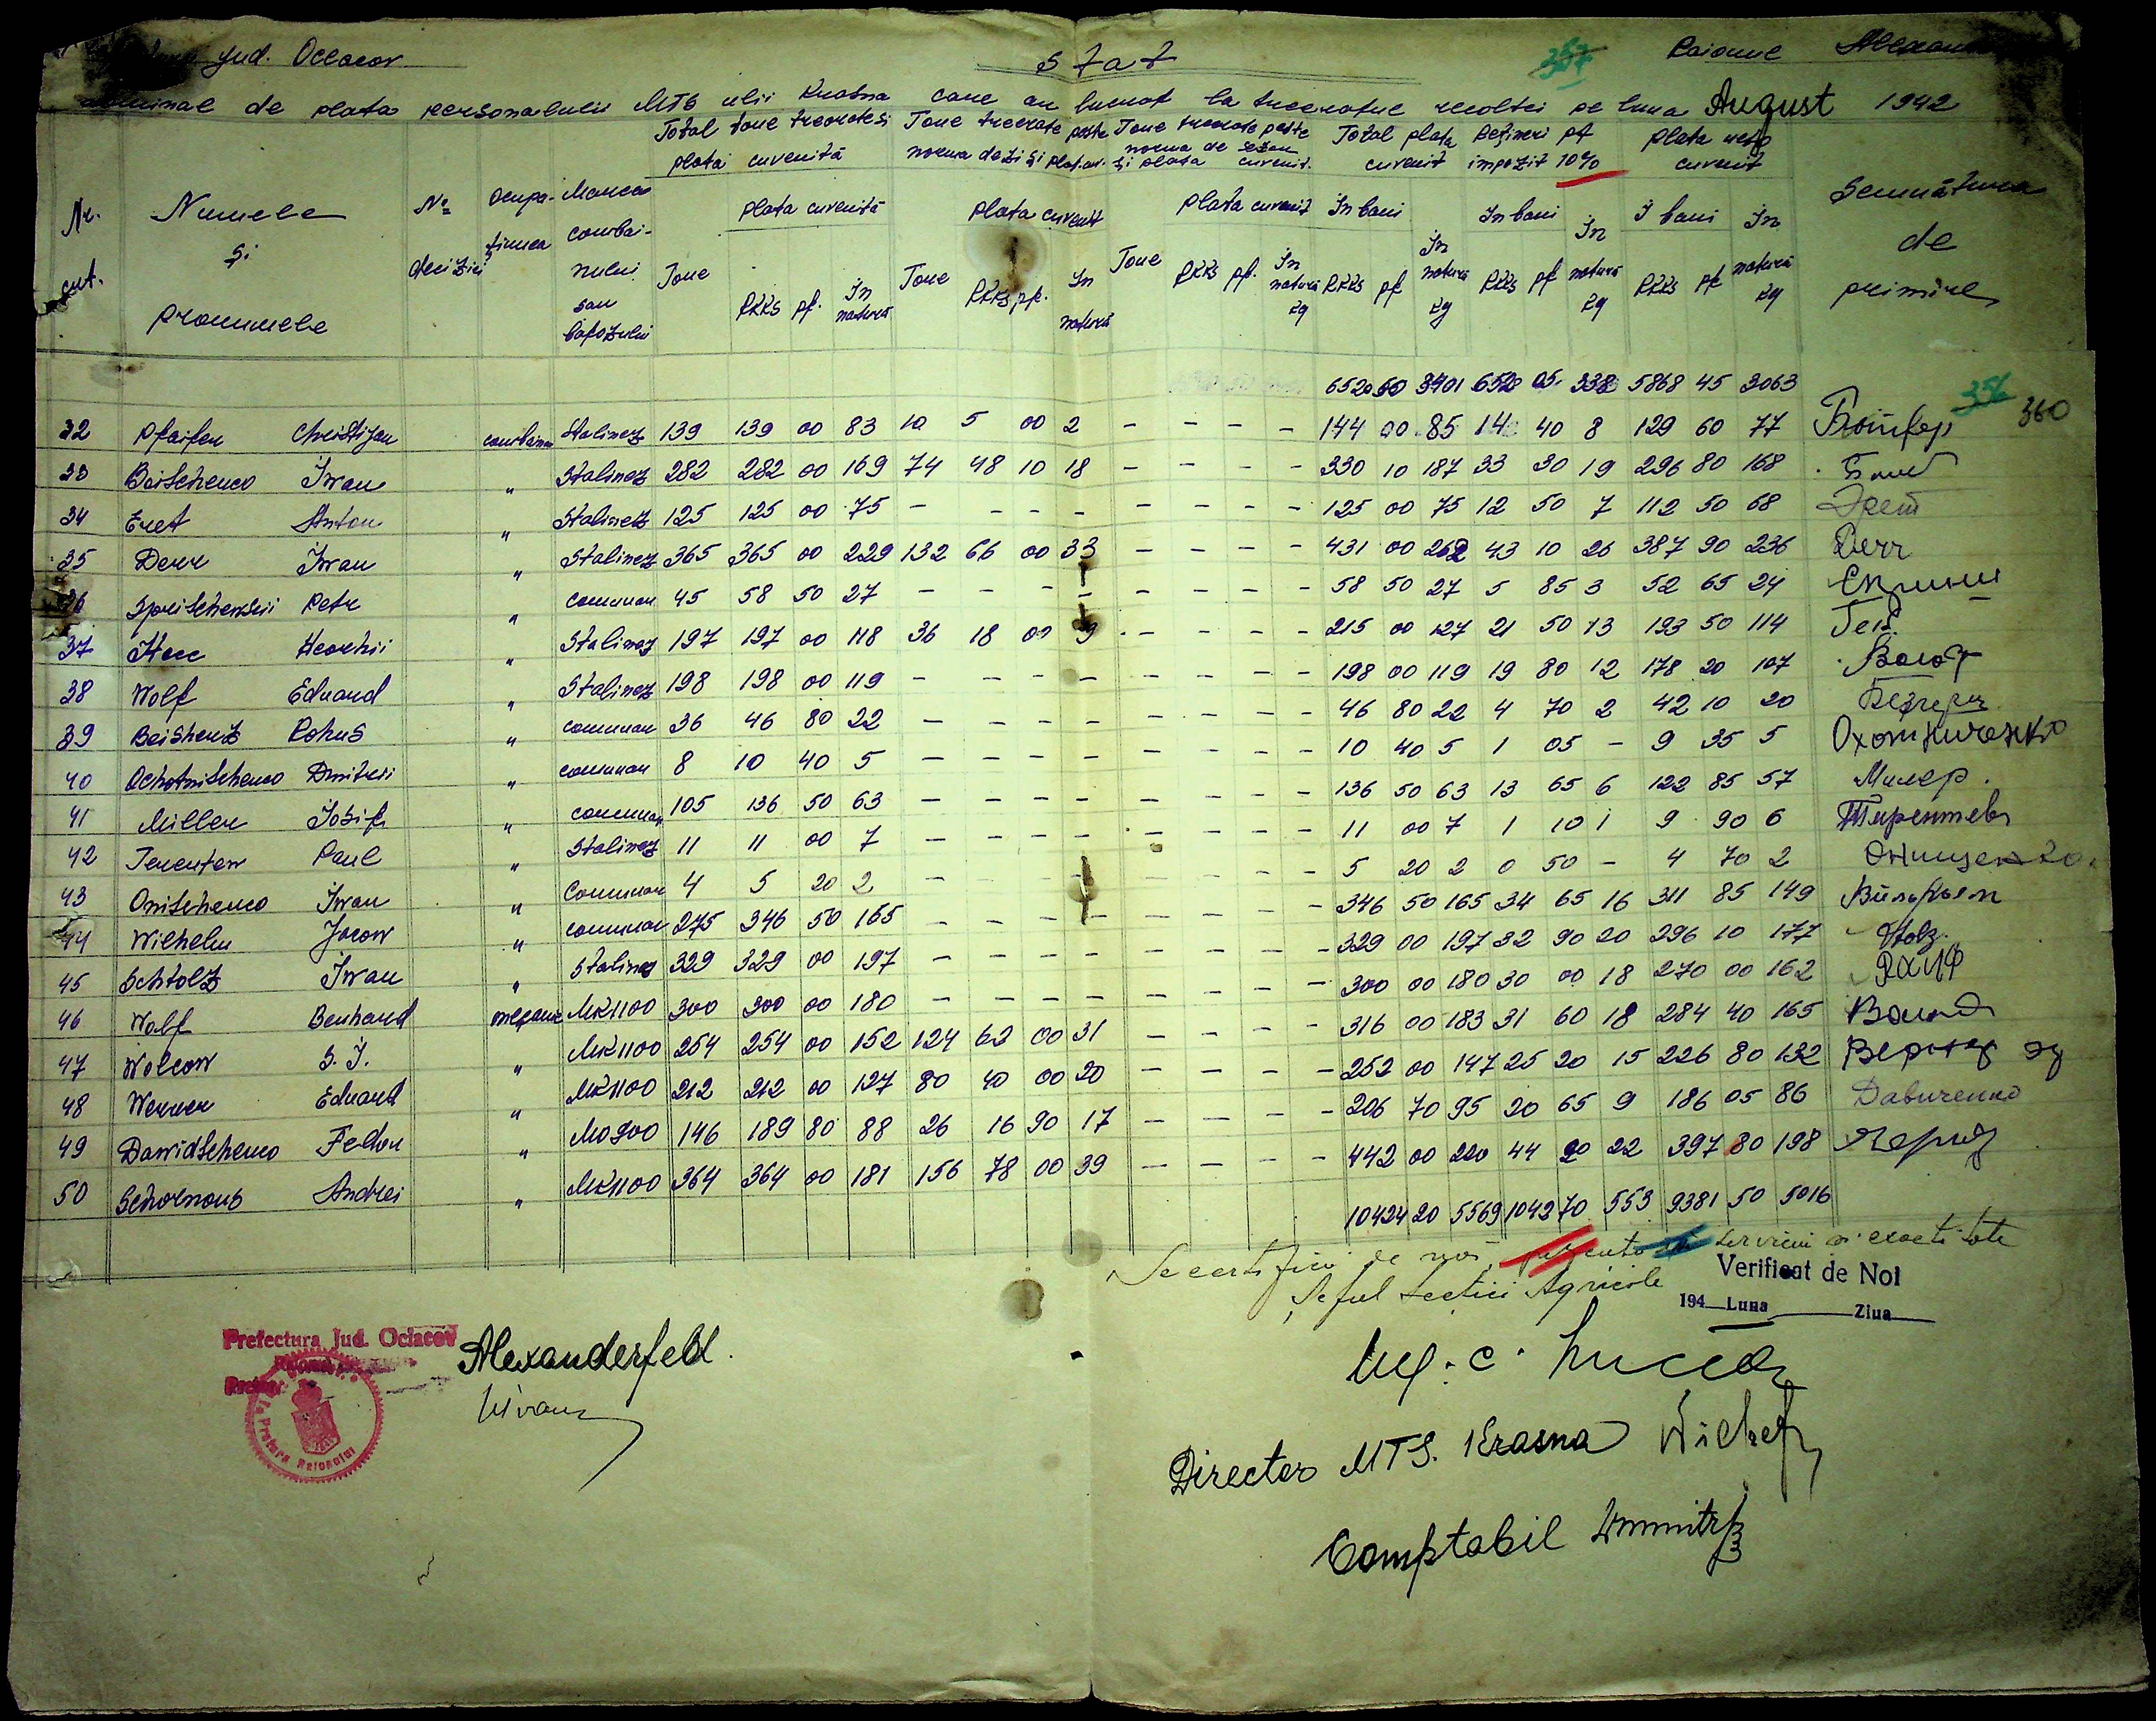 Jud. Oceacov Stat 357 Raionul
nominal de plata personalului MTS ulii Krasna care au lucrat la treeratul recoltei pe luna August 1942
Total tone treerate si plata cuvenită Tone treerate peste norma de zi și plat. cuv. Tone treerate peste norma de sezon și plata cuvenit. Total plata cuvenit Rețineri pt impozit 10% Plata neto cuvenit
Nr. crt. Numele și pronumele No deciziei Ocupațiunea Marca combainului sau batozului Tone plata cuvenită RKKS pf. In natură Tone plata cuvenit RKKS pf. In natură Tone plata cuvenit RKKS pf. In natură kg In bani RKKS pf In natură kg In bani RKKS pf In natură kg I bani RKKS pf In natură kg Semnătura de primire
6520 50 3401 652 05 338 5868 45 3063
356 360
32 Pfaifer Christijan combainer Stalinez 139 139 00 83 10 5 00 2 - - - - 144 00 85 14 40 8 129 60 77
33 Boischenco Iwan " Stalinez 282 282 00 169 74 48 10 18 - - - - 330 10 187 33 30 19 296 80 168
34 Eret Anton " Stalinez 125 125 00 75 - - - - - - - - 125 00 75 12 50 7 112 50 68 Эрет
35 Derr Iwan " Stalinez 365 365 00 229 132 66 00 33 - - - - 431 00 262 43 10 26 387 90 236 Derr
36 Spritchewskii Petr " comunar 45 58 50 27 - - - - - - - - 58 50 27 5 85 3 52 65 24
37 Heorhii " Stalinez 197 197 00 118 36 18 00 9 - - - - 215 00 127 21 50 13 193 50 114
38 Wolf Eduard " Stalinez 198 198 00 119 - - - - - - - - 198 00 119 19 80 12 178 20 107
39 Beishenz Rohus " comunar 36 46 80 22 - - - - - - - - 46 80 22 4 70 2 42 10 20
40 Ochotnitchenco Dmitrii " comunar 8 10 40 5 - - - - - - - - 10 40 5 1 05 - 9 35 5 Охотниченко
41 Miller Iosif " comunar 105 136 50 63 - - - - - - - - 136 50 63 13 65 6 122 85 57 Милер.
42 Terentew Paul " Stalinez 11 11 00 7 - - - - - - - - 11 00 7 1 10 1 9 90 6
43 Onischenco Iwan " Comunar 4 5 20 2 - - - - - - - - 5 20 2 0 50 - 4 70 2 Онищенко
44 Wilhelm Jacow " comunar 275 346 50 165 - - - - - - - - 346 50 165 34 65 16 311 85 149
45 Schtolz Iwan " Stalinez 329 329 00 197 - - - - - - - - 329 00 197 32 90 20 296 10 177 Stolz.
46 Wolf Benhard mecanic MK1100 300 300 00 180 - - - - - - - - 300 00 180 30 00 18 270 00 162
47 Wolcow S. I. " MK1100 254 254 00 152 124 62 00 31 - - - - 316 00 183 31 60 18 284 40 165
48 Werner Eduard " MK1100 212 212 00 127 80 40 00 20 - - - - 252 00 147 25 20 15 226 80 132 Вернер
49 Dawidtchenco Fedor " MO900 146 189 80 88 26 16 90 17 - - - - 206 70 95 20 65 9 186 05 86
50 Schornous Andrei " MK1100 364 364 00 181 156 78 00 39 - - - - 442 00 220 44 20 22 397 80 198
10424 20 5569 1042 70 553 9381 50 5016
Se certifică de noi, exactitate
Verificat de Noi
Șeful Secției Agricole
194 Luna Ziua
Prefectura Jud. Ociacov
Alexanderfeld.
Pretura Raionului
Director MTS. Krasna
Comptabil